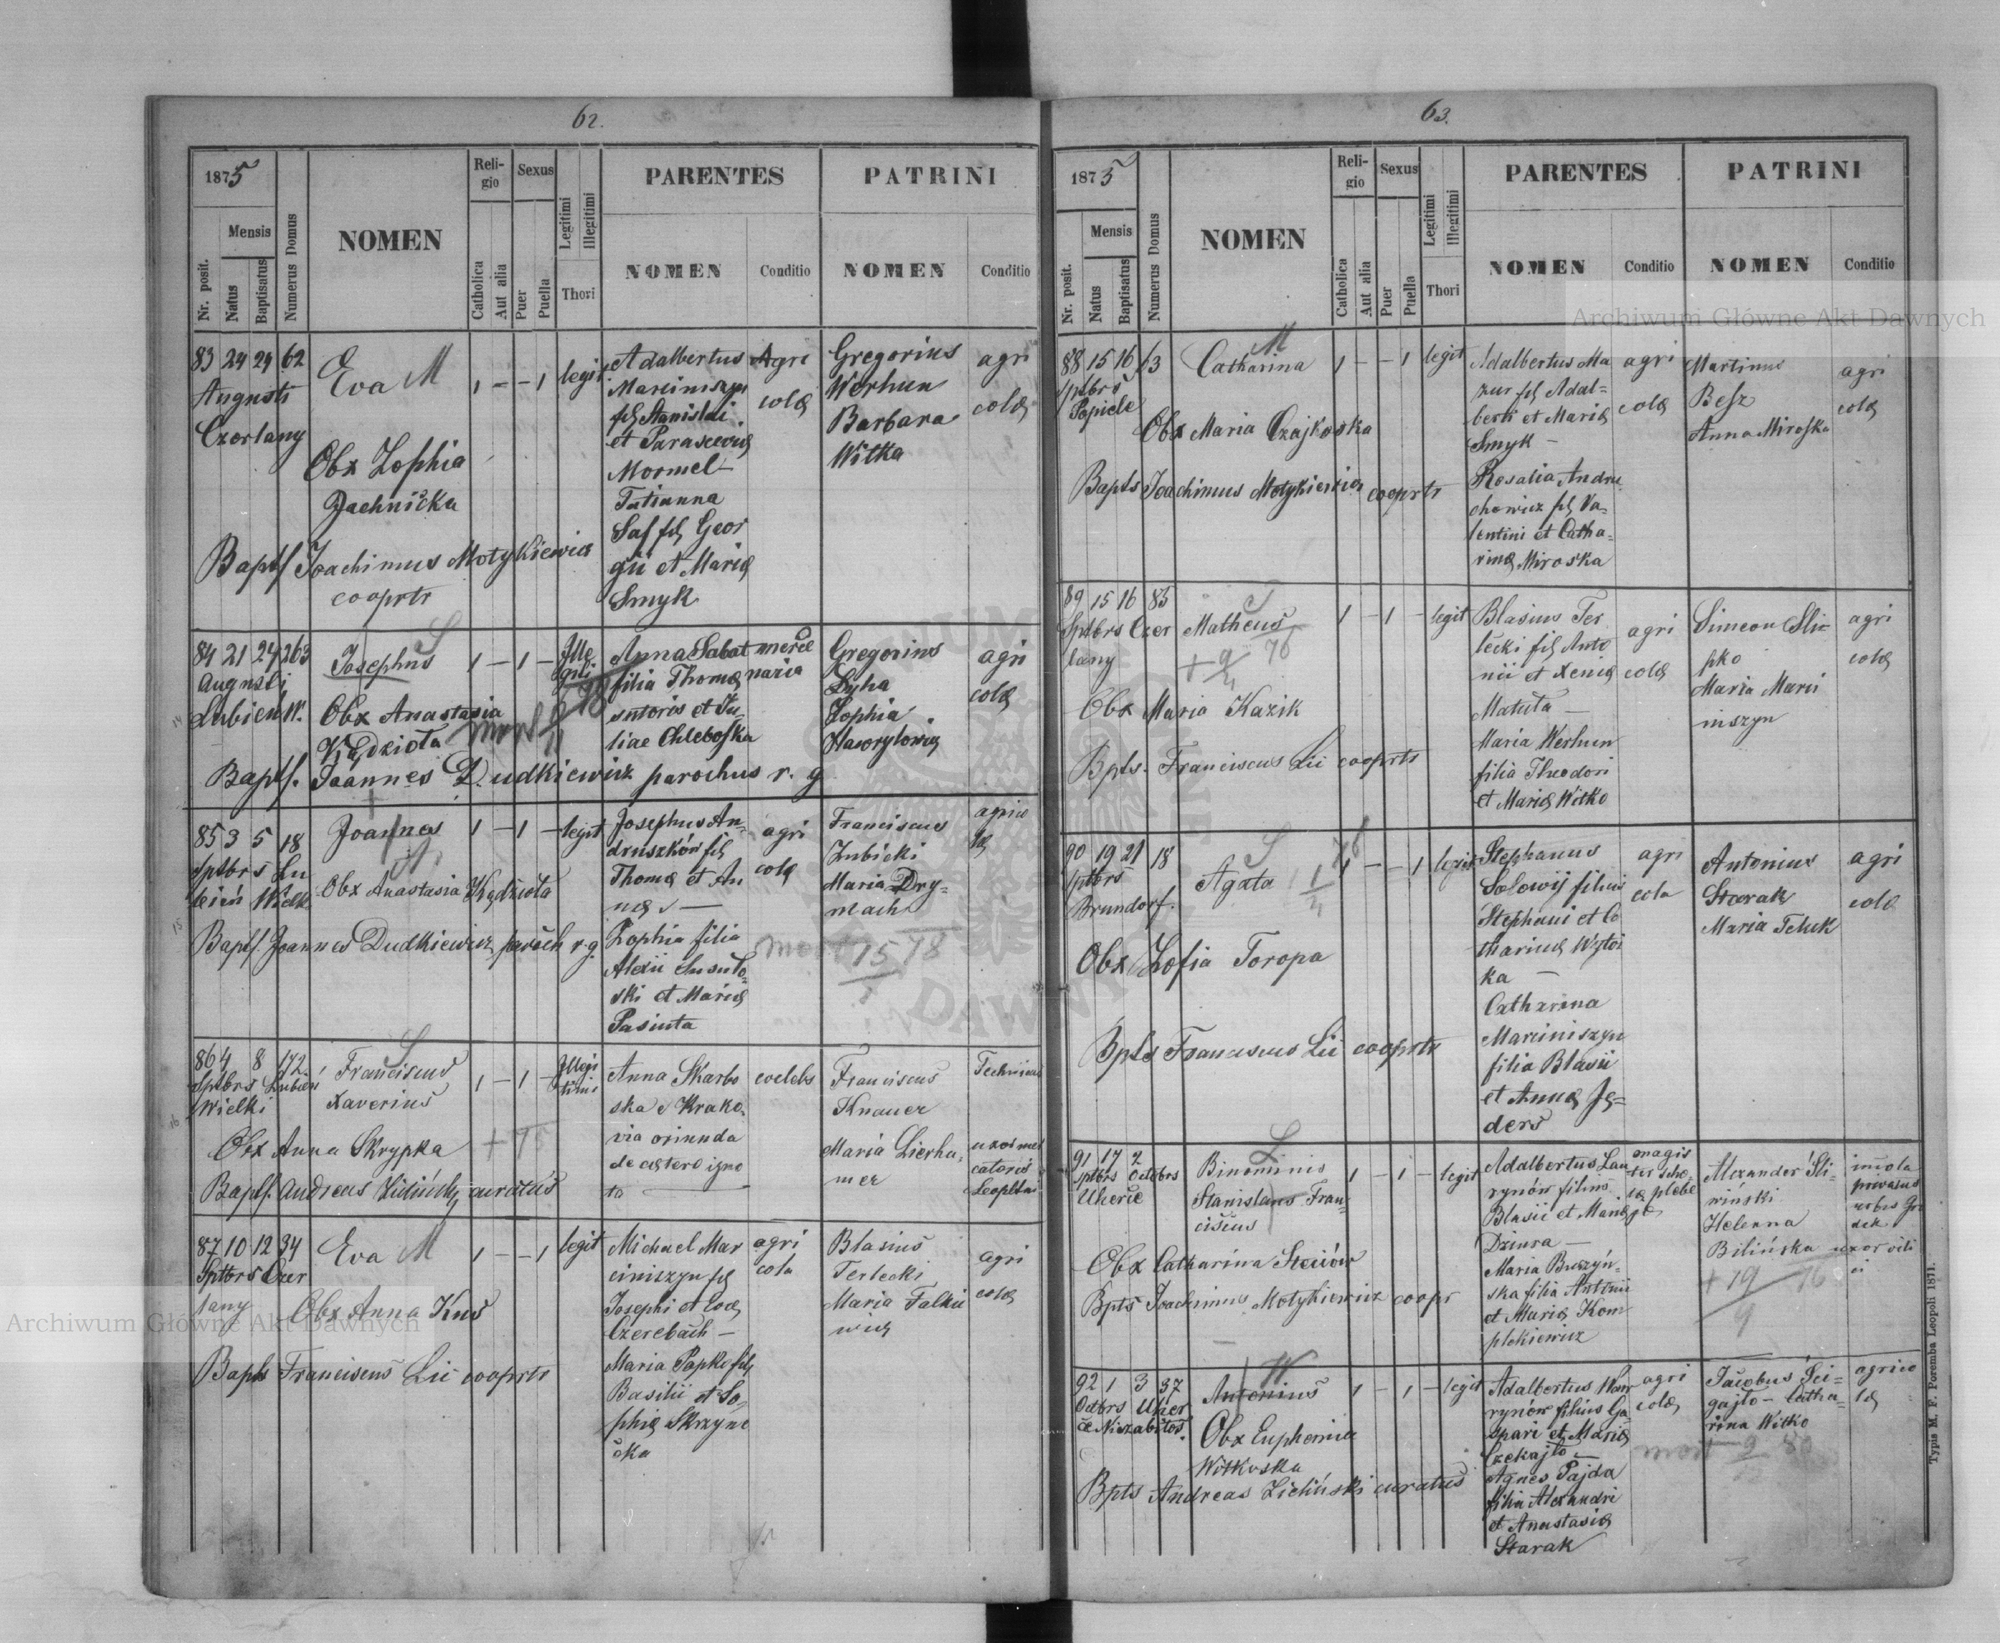 62.
1875
Mensis
Nr. posit.
Natus
Baptisatus
Numerus Domus
NOMEN
Reli-
gio
Catholica
Aut alia
Sexus
Puer
Puella
Legitimi
Illegitimi
Thori
PARENTES
NOMEN
Conditio
PATRINI
NOMEN
Conditio
83 24 24 62
Augusti
Czerlany
Eva M
1 – – 1
legit
Obx Zophia
Jachnicka
Bapts Joachimus Motykiewicz
cooprtr
Adalbertus
Marciniszyn
fil Stanislai
et Parasceviæ
Mormel –
Tatianna
Sas fil Geor
gii et Mariæ
Smyk
Agri
colæ
Gregorius
Werhun
Barbara
Witka
agri
colæ
84 21 24 263
Augusti
Lubień W.
Josephus
S
1 – 1 –
Ille
giti
Obx Anastasia
Kędziola
Bapts. Joannes Dudkiewicz parochus r. g
Anna Sabat
filia Thomæ
sutoris et Ju
liae Chleboska
merce
naria
Gregorius
Lyha
Zophia
Hawrylowicz
agri
colæ
85 3 5 18
Sptbrs Lu
bień Wielk
Joannes
1 – 1 –
legit
Obx Anastasia Kędziola
Bapts. Joannes Dudkiewicz, paroch r. g.
Josephus An-
druszków fil
Thomæ et An
næ –
Zophia filia
Alexii Susulo-
ski et Mariæ
Pasiuta
agri
colæ
Franciscus
Zubicki
Maria Dry-
mach
agrico
læ
mort 15 78
86 4 8 172
Sptbrs Lubień
Wielki
Franciscus
Xaverius
S
1 – 1 –
Illegi
timi
Obx Anna Skrypka
+ 75
Bapts. Andreas Zieliński, curatus
Anna Skarbo
ska e Krako
via oriunda
de cætero igno
ta
coelebs
Franciscus
Knauer
Maria Lierha-
mer
Technicus
uxor mer
catoris
Leopltani
87 10 12 34
Sptbrs Czer
lany
Eva M
1 – – 1
legit
Obx Anna Kuś
Bapts Franciscus Lic cooprtr
Michael Mar
ciniszyn fil
Josephi et Evæ
Czerebach –
Maria Papko fil
Basilii et So
phiæ Skrzyne
cka
agri
cola
Blasius
Terlecki
Maria Falkie
wicz
agri
colæ
63.
1875
Mensis
Nr. posit.
Natus
Baptisatus
Numerus Domus
NOMEN
Reli-
gio
Catholica
Aut alia
Sexus
Puer
Puella
Legitimi
Illegitimi
Thori
PARENTES
NOMEN
Conditio
PATRINI
NOMEN
Conditio
88 15 16 63
Sptbrs
Papiele
M
Catharina
1 – – 1
legit
Obx Maria Czajkoska
Bapts Joachimus Motykiewicz cooprtr
Adalbertus Ma
zur fil Adal-
berti et Mariæ
Smyk –
Rosalia Andru
chowicz fil Va-
lentini et Catha-
rinæ Miroska
agri
colæ
Martinus
Besz
Anna Miroska
agri
colæ
89 15 16 83
Sptbrs Czer
lany
S
Matheus
+ 9/4 76
1 – 1 –
legit
Obx Maria Kazik
Bpts. Franciscus Lic cooprtr
Blasius Ter
lecki fil Anto
nii et Xeniæ
Matuła –
Maria Werhun
filia Theodori
et Mariæ Witko
agri
colæ
Simeon Sli-
pko
Maria Marci
niszyn
agri
colæ
90 19 21 18
Sptbrs
Brundorf.
S
Agata
1 – – 1
legit
Obx Zofia Toropa
Bpts Franciscus Lic cooprtr
Stephanus
Solowij filius
Stephani et Ca
tharinæ Wojtoi
ka –
Catharina
Marciniszyn
filia Blasii
et Annæ Ję-
ders
agri
cola
Antonius
Starak
Maria Teluk
agri
colæ
91 17 2
Sptbrs Octobrs
Uherce
S
Binominis
Stanislaus Fran-
ciscus
1 – 1 –
legit
Obx Catharina Steciów
Bpts Joachimus Motykiewicz coopr
Adalbertus Lau
rynów filius
Blasii et Mariæ
Dziura –
Maria Buszyń-
ska filia Antonii
et Mariæ Kom
plekiewicz
magis
ter scho
læ plebe
jæ
Alexander Sli-
wiński
Helenna
Bilińska
+ 19 76
9
incola
privatus
urbis Gro
dek
uxor vili
ci
92 1 3 37
Octbrs Uher
ce Niezabitos.
W
Antonius
1 – 1 –
legit
Obx Euphemia
Witkoska
Bpts Andreas Zieliński curatus
Adalbertus Waw
rynów filius Ga-
spari et Mariæ
Czekajło –
Agnes Pajda
filia Alexandri
et Anastasiæ
Starak
agri
colæ
Jacobus Sci-
gajlo – Catha-
rina Witko
mort 9 80
agrico
læ
Typis M. F. Poremba Leopoli 1871.
Archiwum Główne Akt Dawnych
Archiwum Główne Akt Dawnych